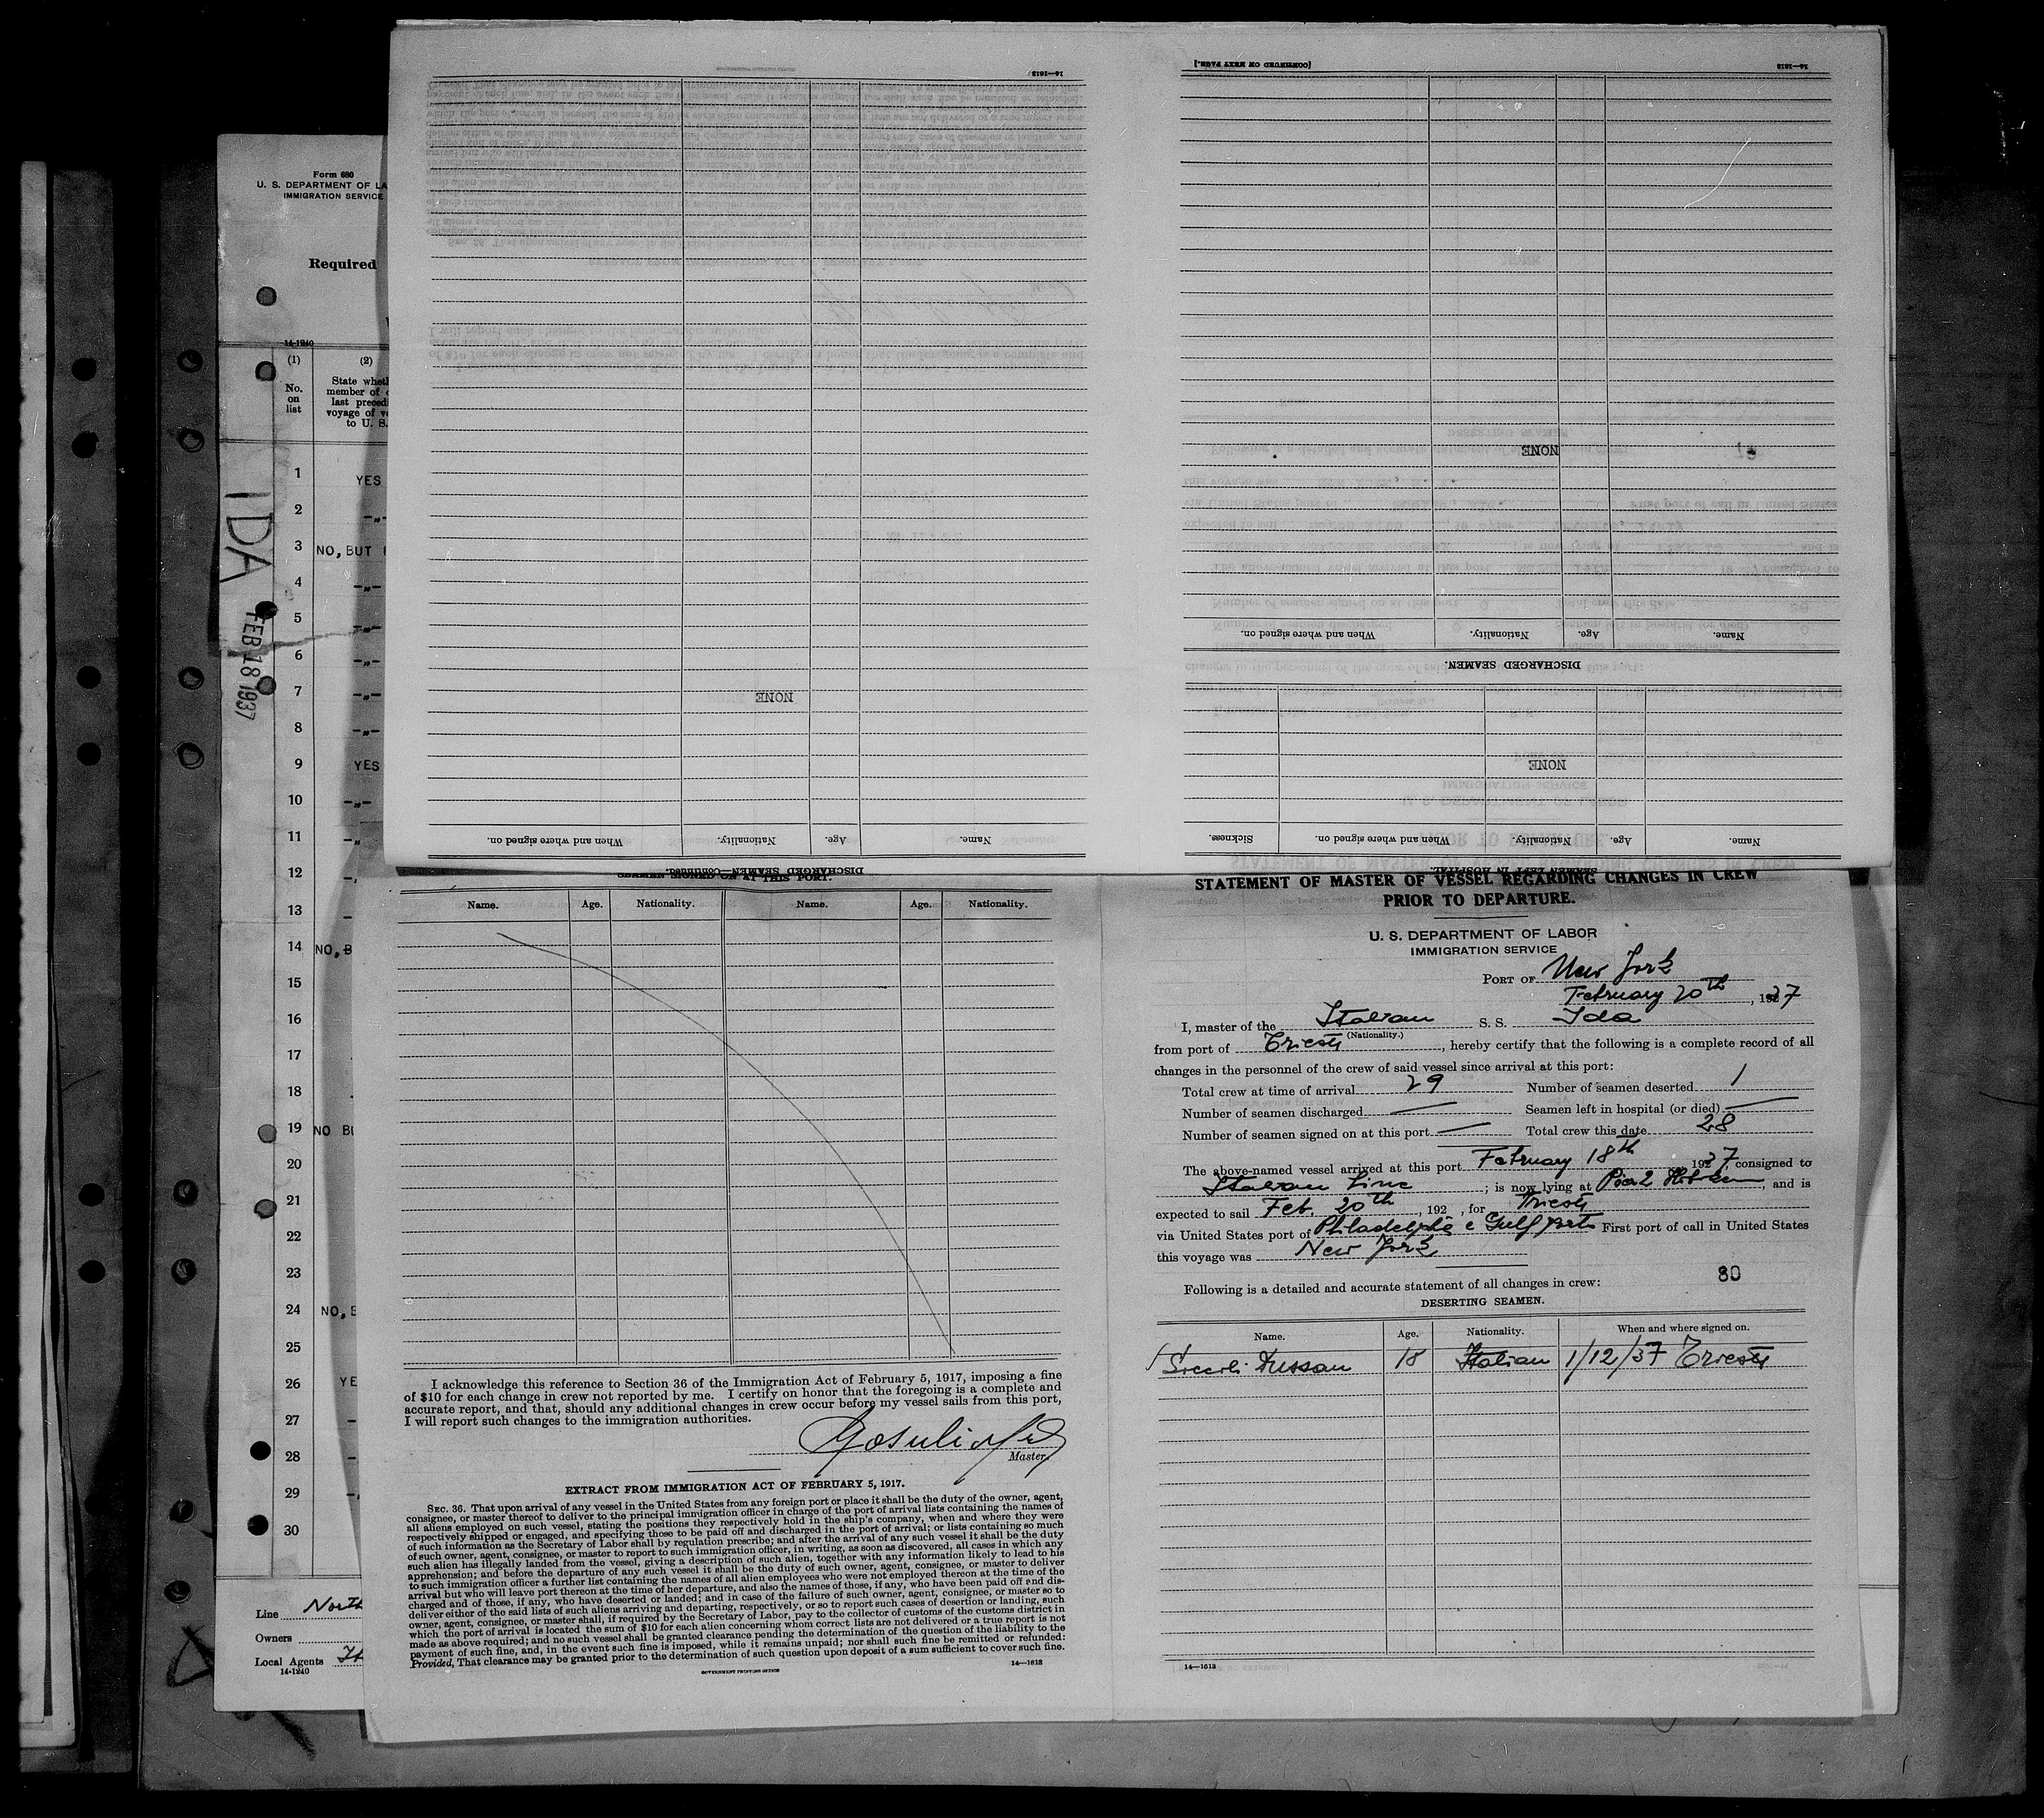 Form 680
U. S. DEPARTMENT OF LA
IMMIGRATION SERVICE
Required
14-1240
(1) (2)
No. on list
State whet
member of
last preced
voyage of v
to U. S.
IDA
FEB 18 1937
1 YES
2 -„-
3 NO, BUT
4 -„-
5 -„-
6 -„-
7 -„-
8 -„-
9 YES
10 -„-
11 -„
12
13
14 NO, B
15
16
17
18
19 NO BU
20
21
22
23
24 NO, B
25
26 YE
27
28
29
30
Line North
Owners
Local Agents
14-1240
14—1613
DISCHARGED SEAMEN—Continued.
Name. Age. Nationality. When and where signed on.
NONE
SEAMEN LEFT IN HOSPITAL.
Name. Age. Nationality. When and where signed on. Sickness.
NONE
DISCHARGED SEAMEN.
Name. Age. Nationality. When and where signed on.
NONE
14—1613
[CONTINUED ON NEXT PAGE.]
SEAMEN SIGNED ON AT THIS PORT.
Name. Age. Nationality. Name. Age. Nationality.
I acknowledge this reference to Section 36 of the Immigration Act of February 5, 1917, imposing a fine
of $10 for each change in crew not reported by me. I certify on honor that the foregoing is a complete and
accurate report, and that, should any additional changes in crew occur before my vessel sails from this port,
I will report such changes to the immigration authorities.
Master.
EXTRACT FROM IMMIGRATION ACT OF FEBRUARY 5, 1917.
SEC. 36. That upon arrival of any vessel in the United States from any foreign port or place it shall be the duty of the owner, agent,
consignee, or master thereof to deliver to the principal immigration officer in charge of the port of arrival lists containing the names of
all aliens employed on such vessel, stating the positions they respectively hold in the ship's company, when and where they were
respectively shipped or engaged, and specifying those to be paid off and discharged in the port of arrival; or lists containing so much
of such information as the Secretary of Labor shall by regulation prescribe; and after the arrival of any such vessel it shall be the duty
of such owner, agent, consignee, or master to report to such immigration officer, in writing, as soon as discovered, all cases in which any
such alien has illegally landed from the vessel, giving a description of such alien, together with any information likely to lead to his
apprehension; and before the departure of any such vessel it shall be the duty of such owner, agent, consignee, or master to deliver
to such immigration officer a further list containing the names of all alien employees who were not employed thereon at the time of the
arrival but who will leave port thereon at the time of her departure, and also the names of those, if any, who have been paid off and dis-
charged and of those, if any, who have deserted or landed; and in case of the failure of such owner, agent, consignee, or master so to
deliver either of the said lists of such aliens arriving and departing, respectively, or so to report such cases of desertion or landing, such
owner, agent, consignee, or master shall, if required by the Secretary of Labor, pay to the collector of customs of the customs district in
which the port of arrival is located the sum of $10 for each alien concerning whom correct lists are not delivered or a true report is not
made as above required; and no such vessel shall be granted clearance pending the determination of the question of the liability to the
payment of such fine, and, in the event such fine is imposed, while it remains unpaid; nor shall such fine be remitted or refunded:
Provided, That clearance may be granted prior to the determination of such question upon deposit of a sum sufficient to cover such fine.
GOVERNMENT PRINTING OFFICE 14—1613
STATEMENT OF MASTER OF VESSEL REGARDING CHANGES IN CREW
PRIOR TO DEPARTURE.
U. S. DEPARTMENT OF LABOR
IMMIGRATION SERVICE
PORT OF New York
February 20th, 1937
I, master of the Italian S. S. Ida
(Nationality.)
from port of Trieste, hereby certify that the following is a complete record of all
changes in the personnel of the crew of said vessel since arrival at this port:
Total crew at time of arrival 29 Number of seamen deserted 1
Number of seamen discharged — Seamen left in hospital (or died) —
Number of seamen signed on at this port — Total crew this date 28
The above-named vessel arrived at this port February 18th 1937, consigned to
Italian Line; is now lying at Pier 2 Hoboken, and is
expected to sail Feb. 20th, 192 , for Trieste
via United States port of Philadelphia e Gulf ports First port of call in United States
this voyage was New York
Following is a detailed and accurate statement of all changes in crew: 80
DESERTING SEAMEN.
Name. Age. Nationality. When and where signed on.
Dussan 18 Italian 1/12/37 Trieste
14—1613